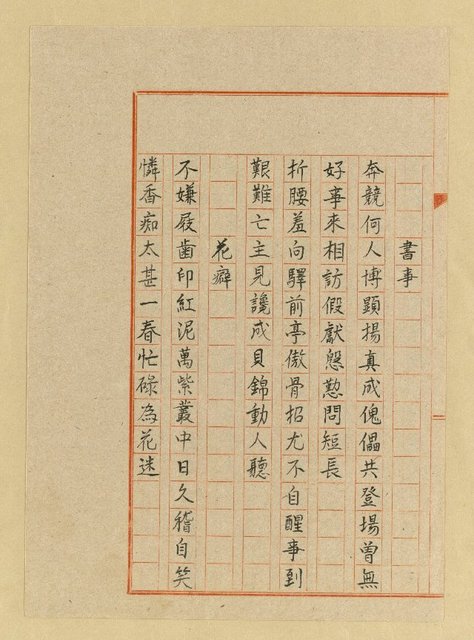 書事
奔競何人博顯揚真成傀儡共登場曾無
好事來相訪假獻慇懃問短長
折腰羞向驛前亭傲骨招尤不自醒事到
艱難亡主見讒成貝錦動人聽
花癖
不嫌屐齒印紅泥萬紫叢中日久稽自笑
憐香痴太甚一春忙碌為花迷